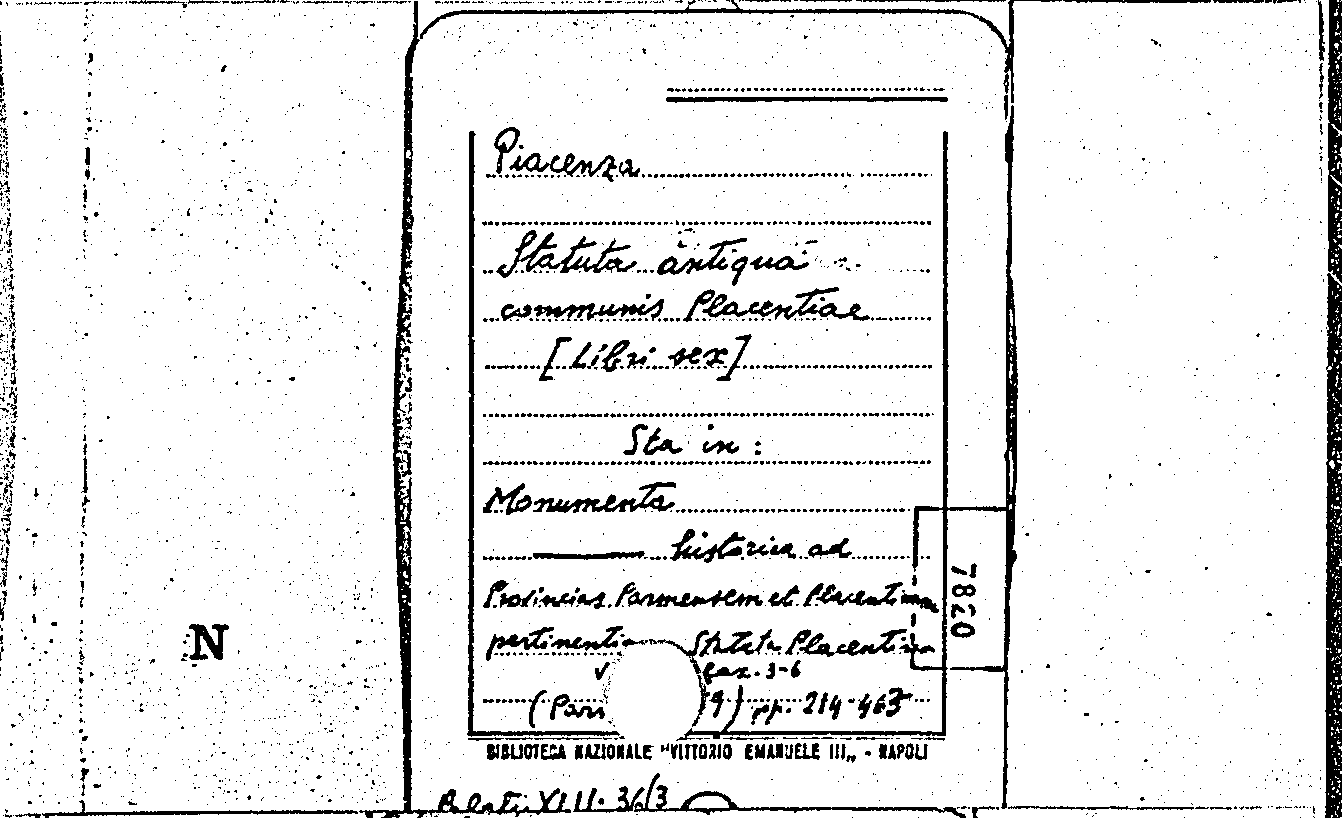 Piacenza
Statuta antiqua
communis Placentiae
[Libri sex]
Sta in:
Monumenta
historica ad
Provincias Parmensem et Placentinam
pertinentia Statuta Placentina
fax. 3-6
9) pp. 214-463
BIBLIOTECA NAZIONALE "VITTORIO EMANUELE III„ - NAPOLI
XLII. 36/3
7820
N